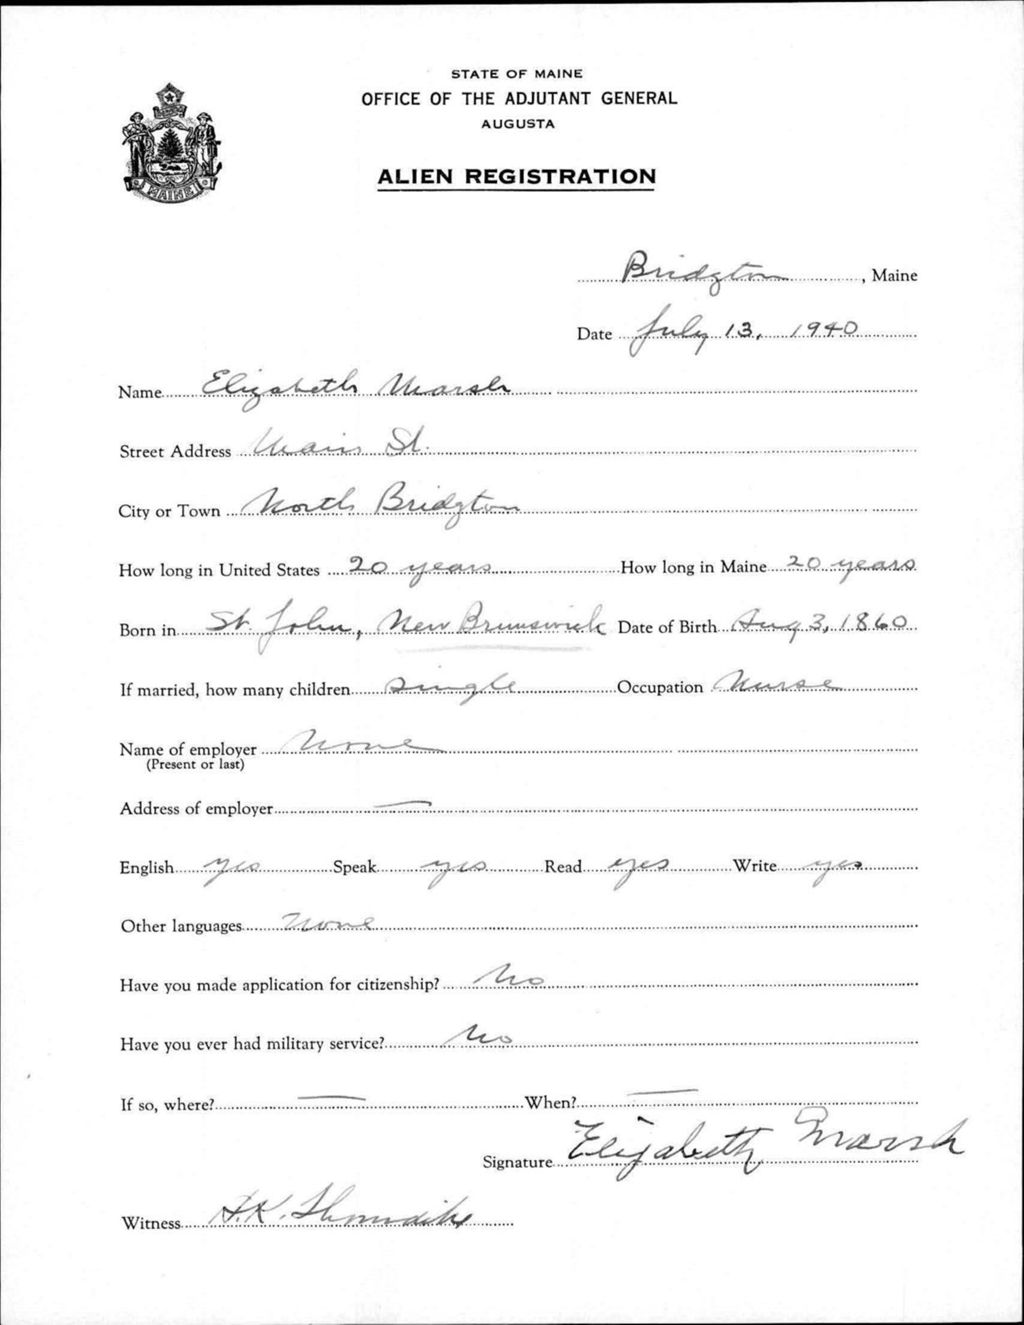 STATE OF MAINE
OFFICE OF THE ADJUTANT GENERAL
AUGUSTA
MAINE
ALIEN REGISTRATION
Bridgton, Maine
Date July 13, 1940
Name Elizabeth Marsh
Street Address Main St.
City or Town North Bridgton
How long in United States 20 years How long in Maine 20 years
Born in St. John, New Brunswick Date of Birth Aug 3, 1860
If married, how many children single Occupation Nurse
Name of employer None
(Present or last)
Address of employer —
English yes Speak yes Read yes Write yes
Other languages none
Have you made application for citizenship? No
Have you ever had military service? No
If so, where? — When? —
Signature Elizabeth Marsh
Witness